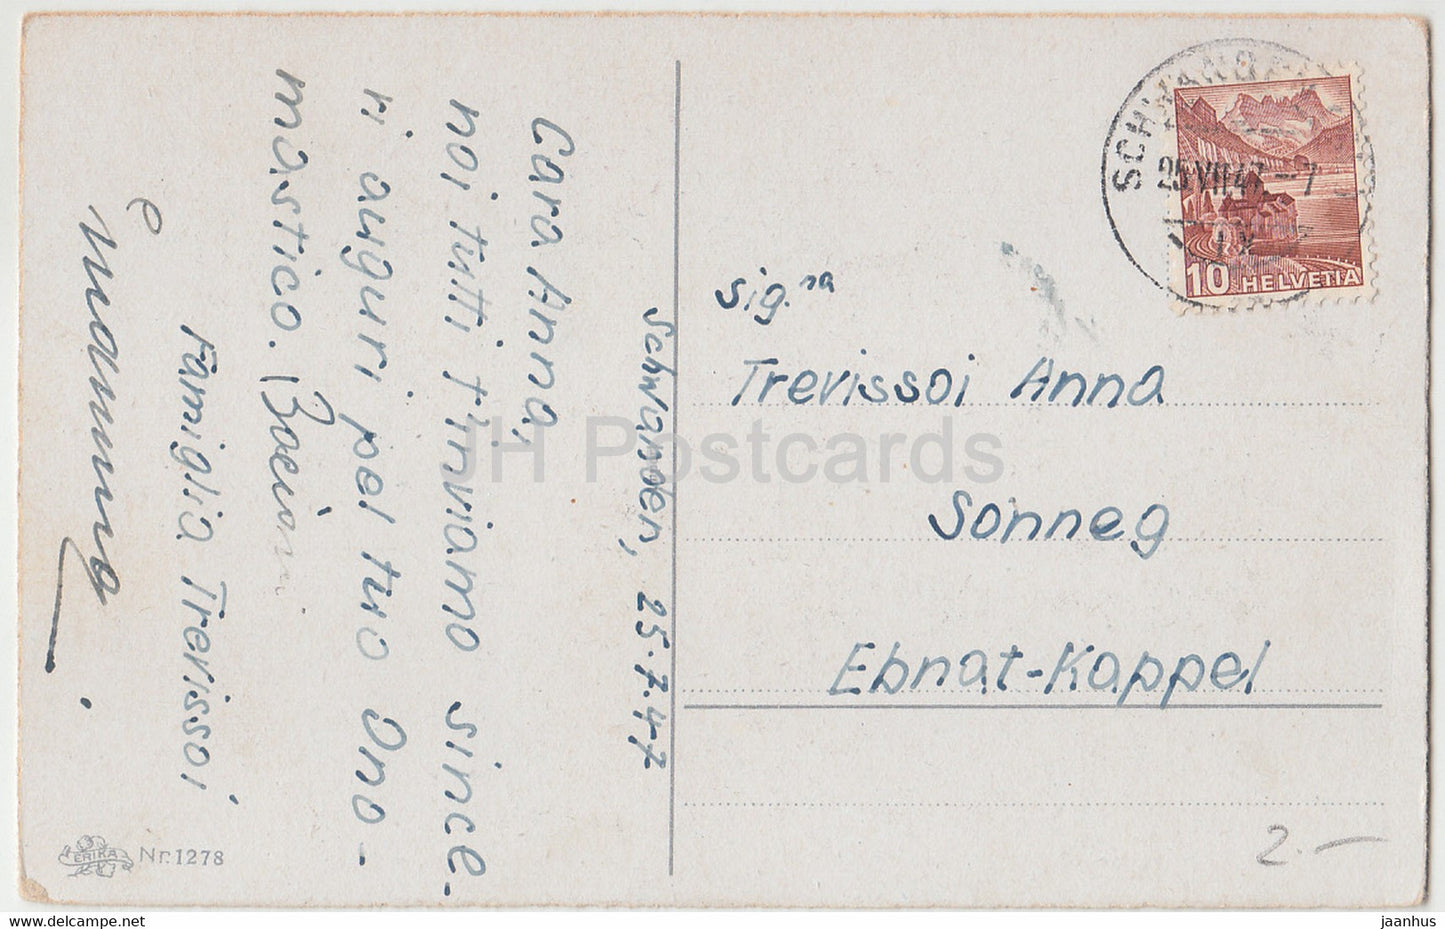 Schwanden, 25.7.47
Cara Anna,
noi tutti t'inviamo since-
ri auguri pel tuo Ono-
mastico. Bacioni
Famiglia Trevissoi
e
sig.na
Trevissoi Anna
Sonneg
Ebnat-Kappel
25 VII 47 - 7
10 HELVETIA
ERIKA
Nr. 1278
2.-
JH Postcards
hippostcard.net
jaanhus